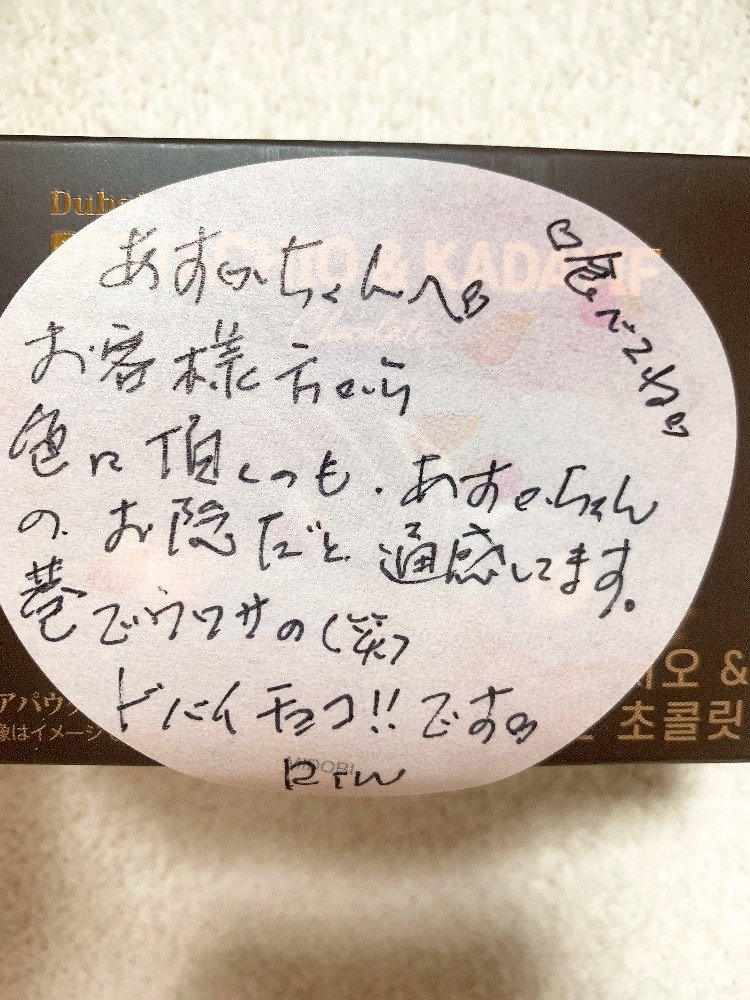 Dub
CHIO & KADA EF
Chocolate
あすかちゃんへ♡
お客様方から
色々頂くのも、あすかちゃん
のお隠だと通感してます。
巷でウワサの(笑)
ドバイチョコ!!です♡
Rin
MIDORI
오 &
초콜릿
アパウ
像はイメージ